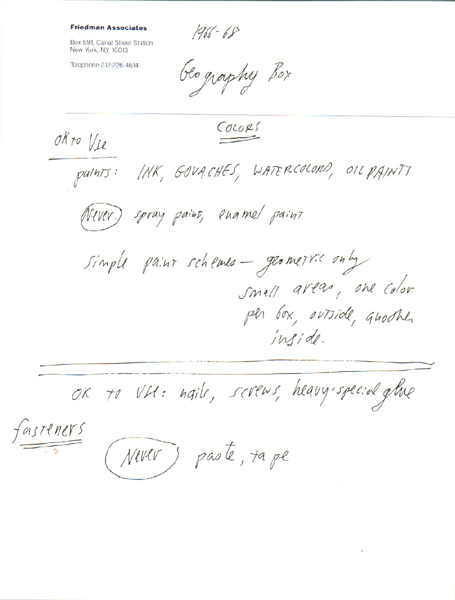 Friedman Associates
Box 691, Canal Street Station
New York, NY 10013
Telephone 212-226-4614
1966-68
Geography Box
COLORS
OK TO USE
paints: INK, GOUACHES, WATERCOLORS, OIL PAINTS
Never spray paint, enamel paint
simple paint schemes — geometric only
small areas, one color
per box, outside, another
inside.
OK TO USE: nails, screws, heavy-special glue
fasteners
Never paste, tape